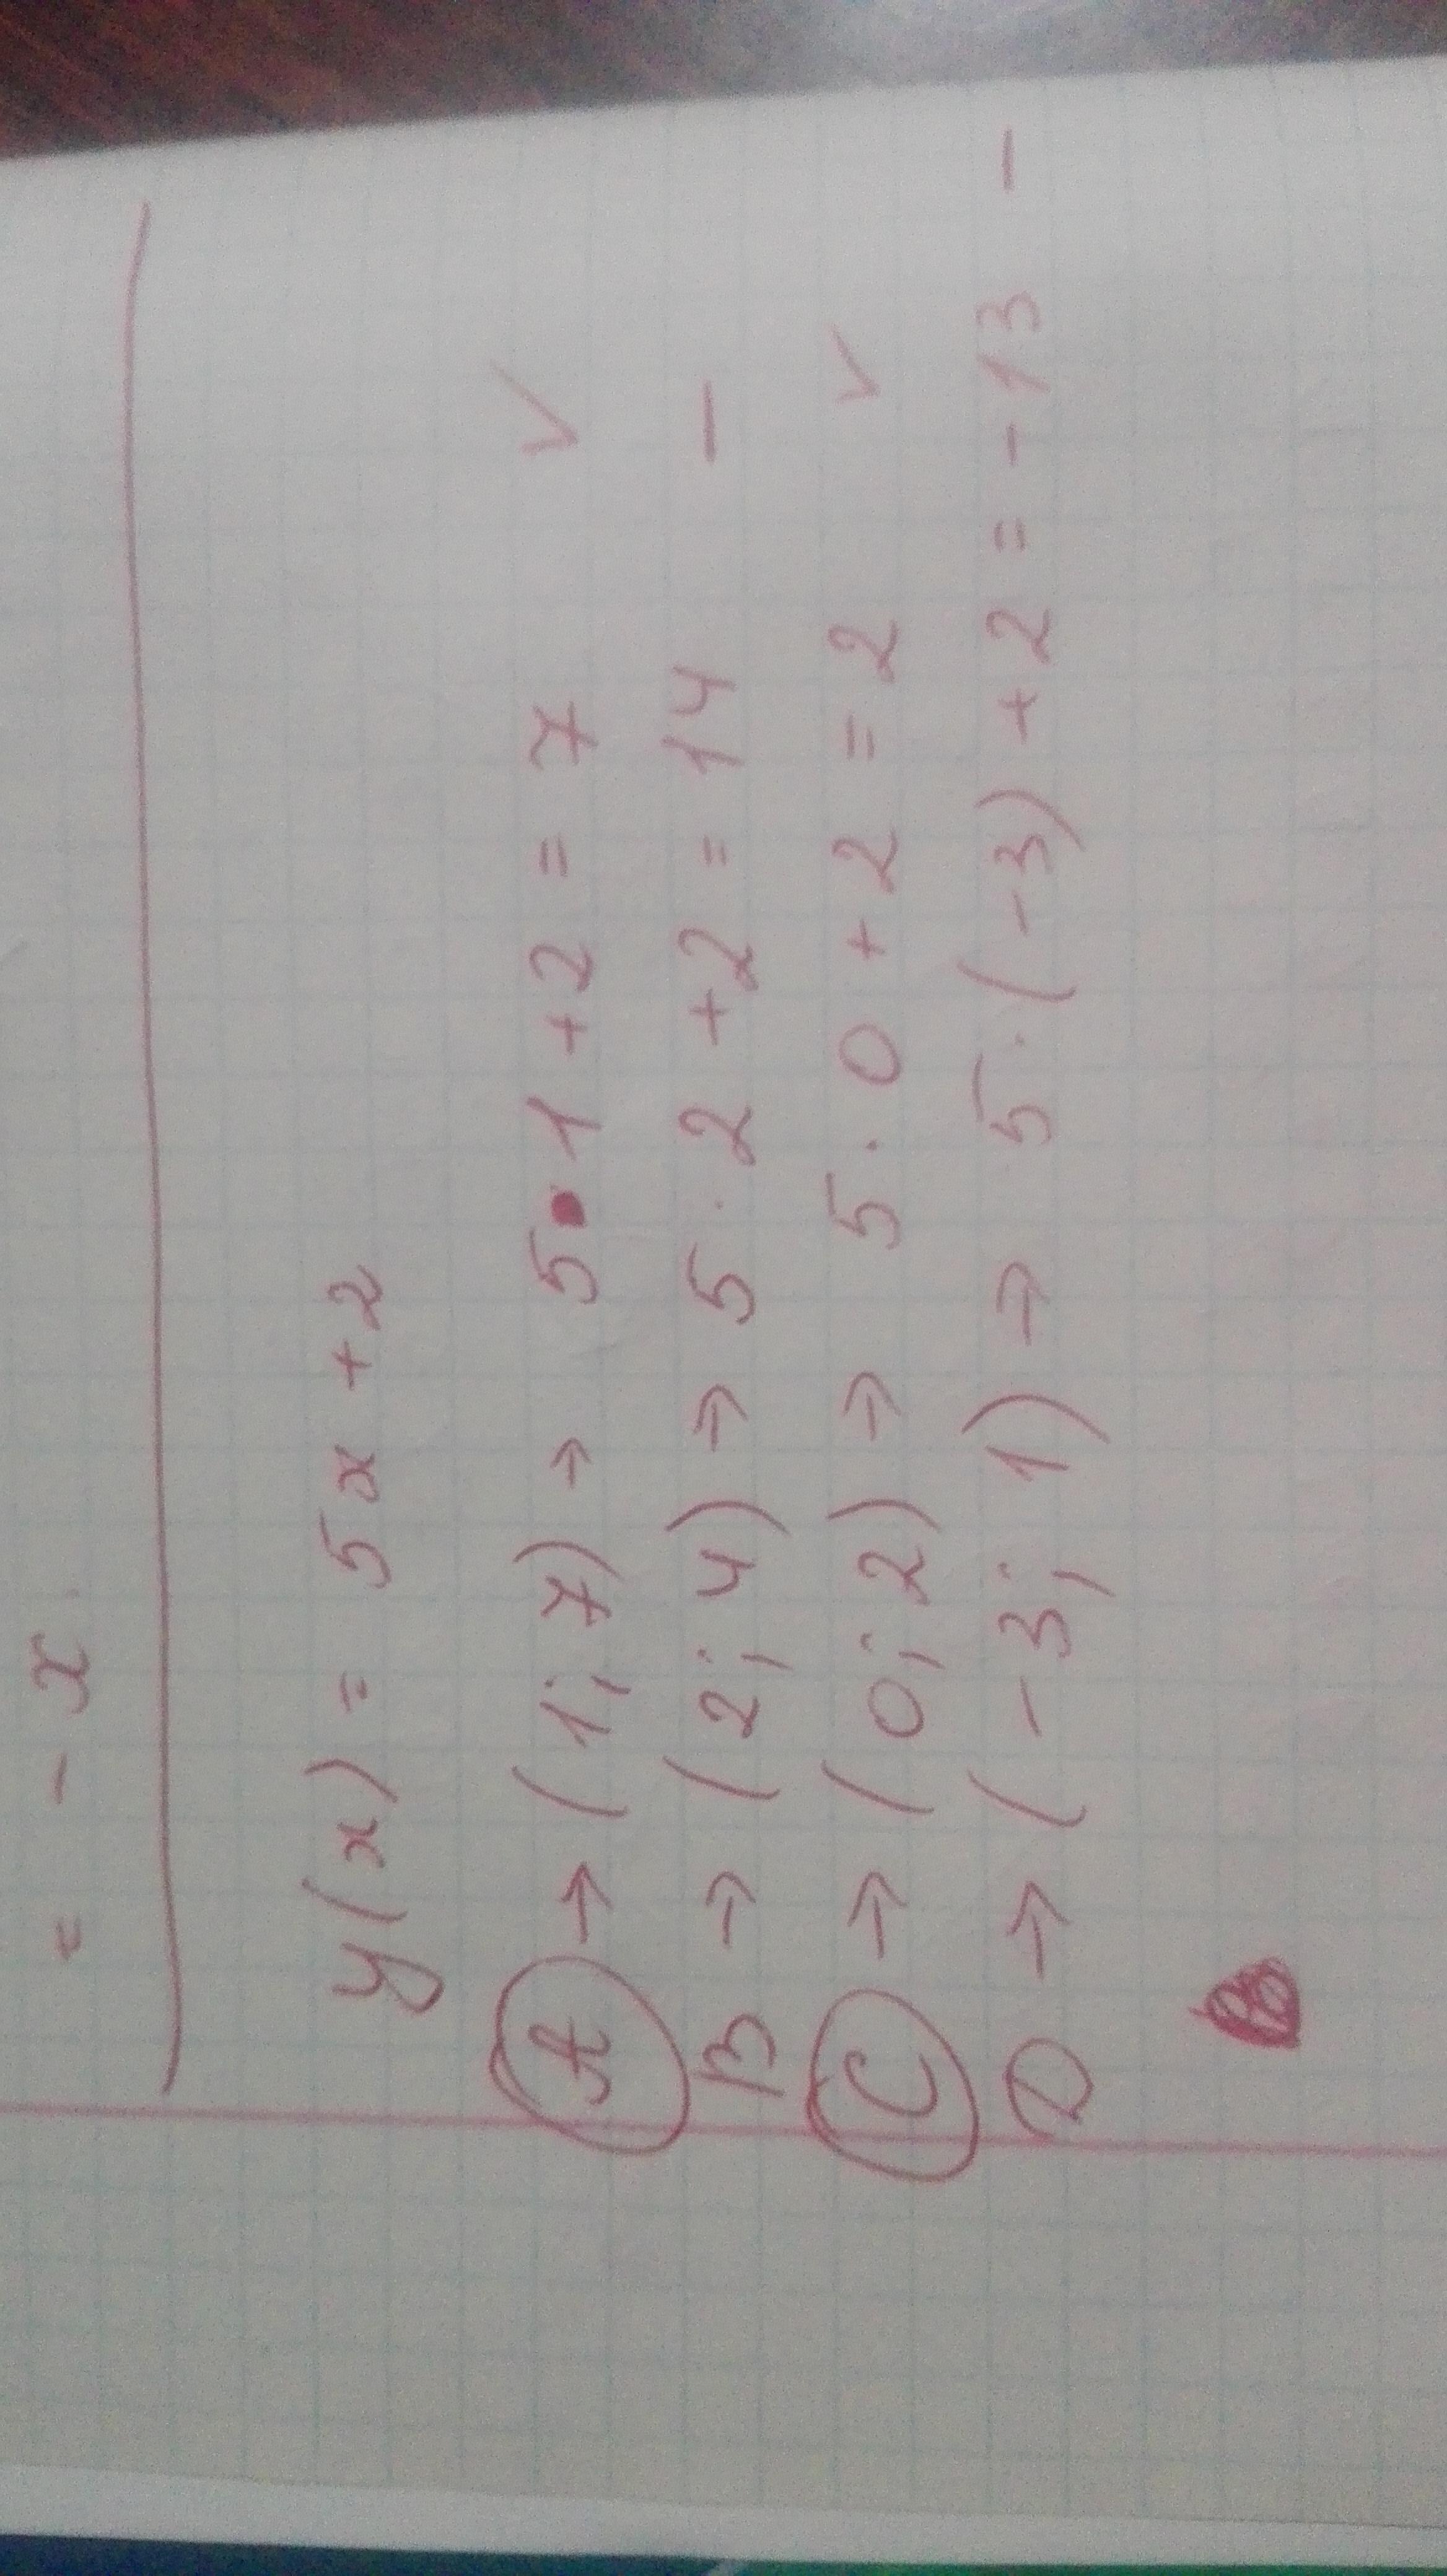 = - x
y(x) = 5x + 2
A → (1; 7) → 5 • 1 + 2 = 7 v
B → (2; 4) → 5 · 2 + 2 = 14 -
C → (0; 2) → 5 · 0 + 2 = 2 v
D → (-3; 1) → 5 · (-3) + 2 = -13 -